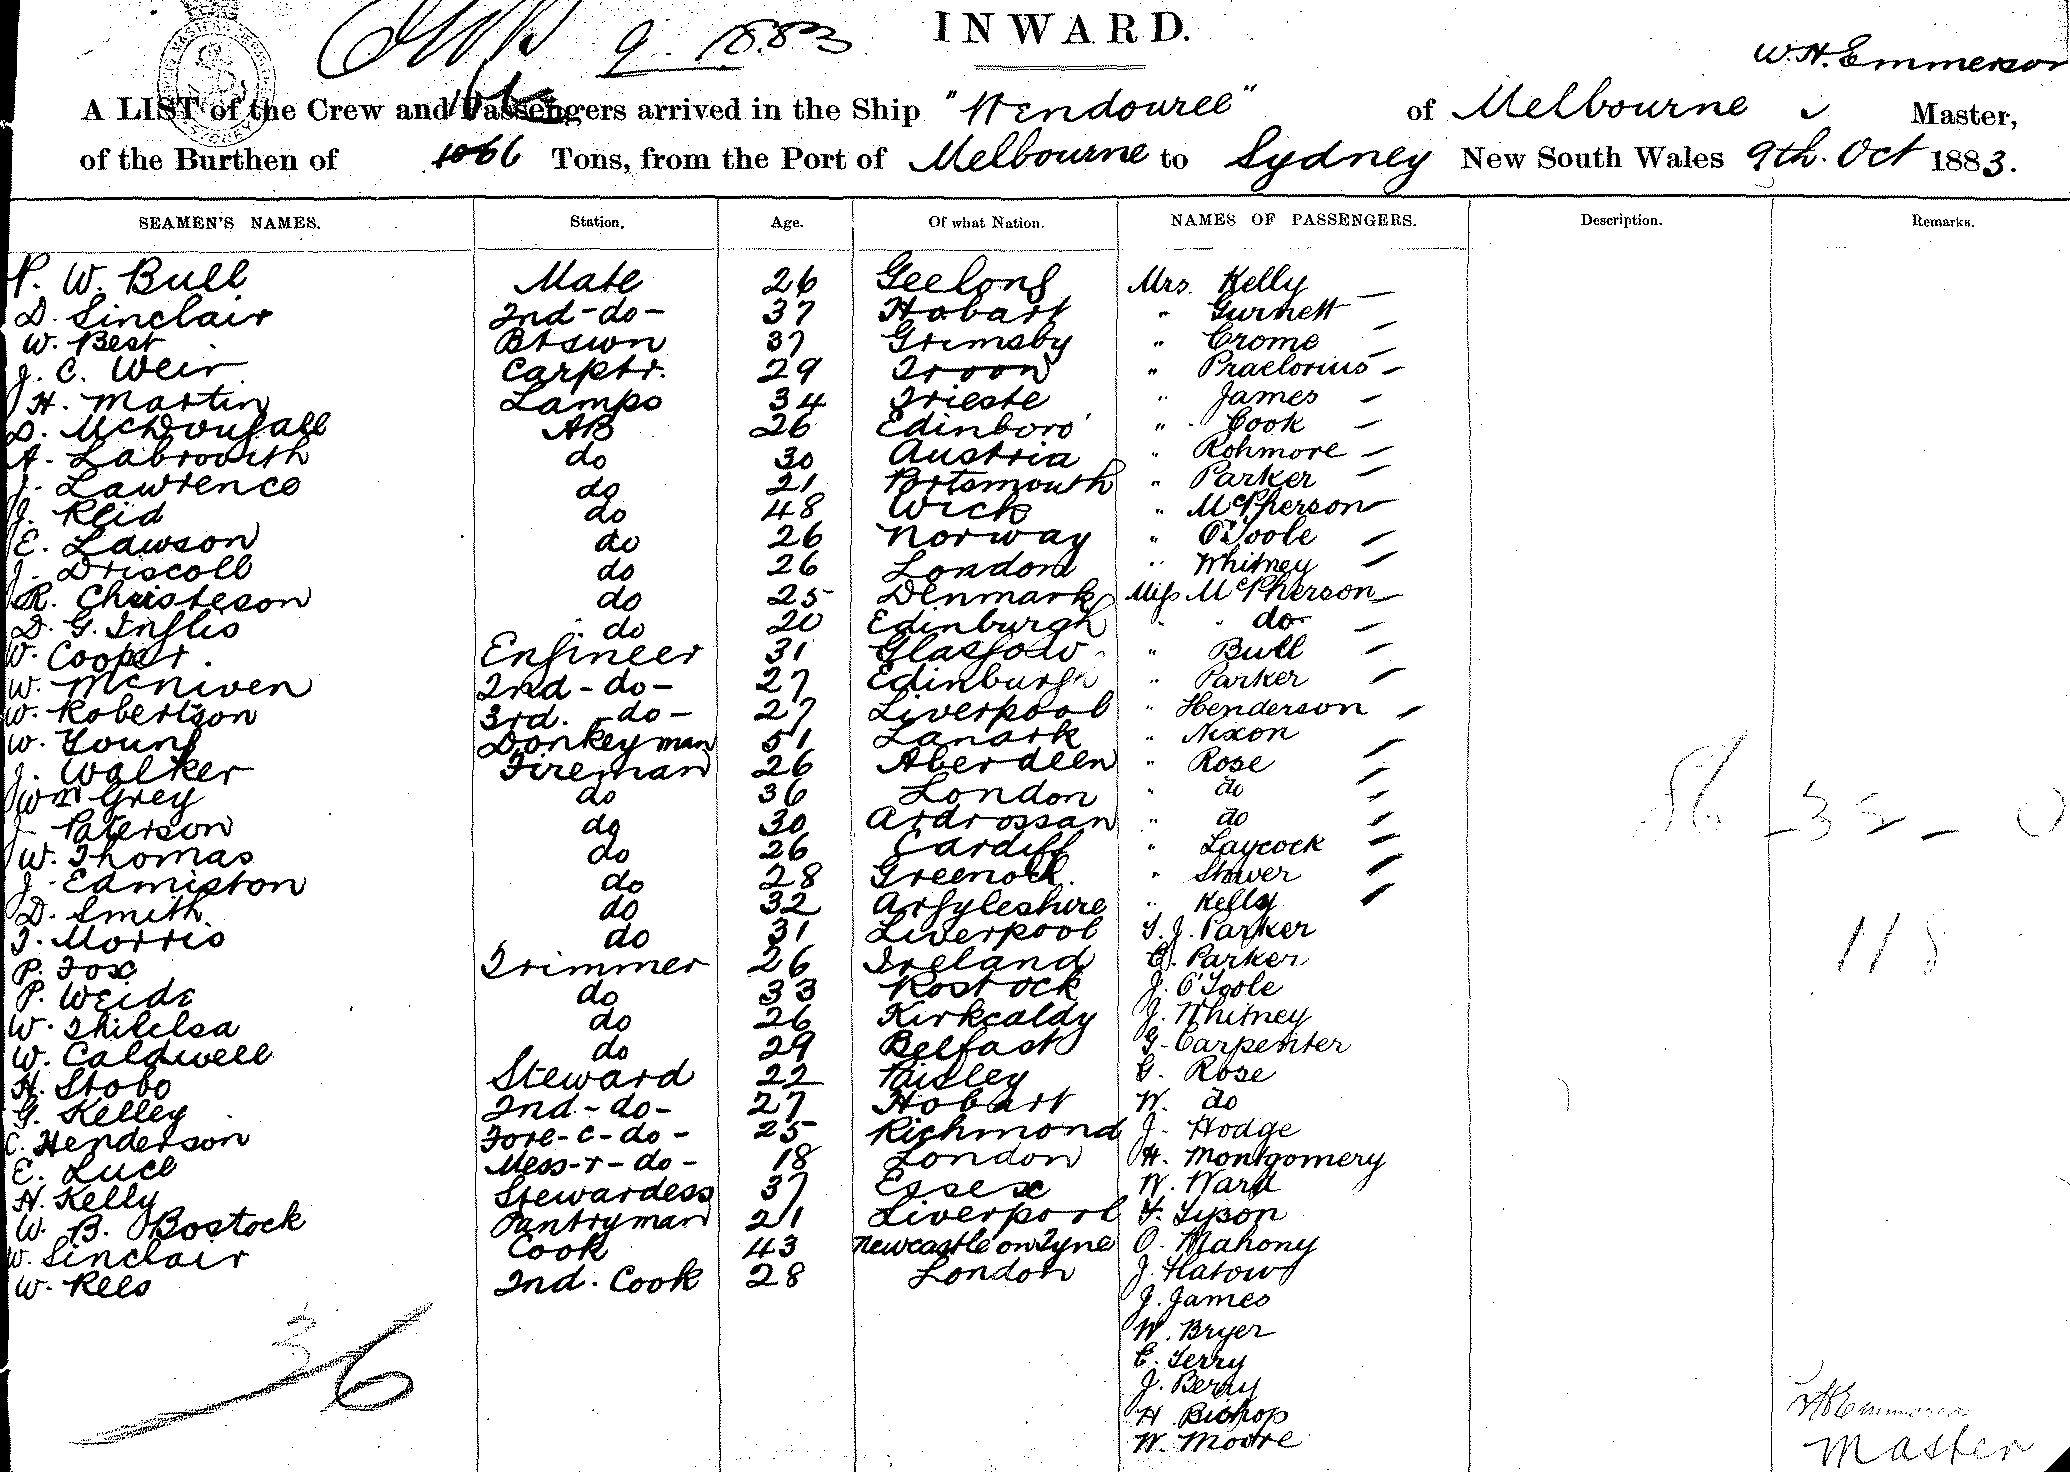 9. 1883
INWARD.
W. H. Emmerson
A LIST of the Crew and Passengers arrived in the Ship "Wendouree" of Melbourne Master,
of the Burthen of 1066 Tons, from the Port of Melbourne to Sydney New South Wales 9th. Oct 1883.
SEAMEN'S NAMES. Station. Age. Of what Nation. NAMES OF PASSENGERS. Description. Remarks.
P. W. Bull Mate 26 Geelong Mrs. Kelly —
D. Sinclair 2nd - do - 37 Hobart " Gurnett —
W. Best Btswn 37 Grimsby " Crome —
J. C. Weir Carptr. 29 Troon " Praetorius —
H. Martin Lamps 34 Trieste " James —
D. McDougall AB 26 Edinboro' " Cook —
A. do 30 Austria " Rohmore —
J. Lawrence do 21 Portsmouth " Parker —
J. Reid do 48 Wick " McPherson —
E. Lawson do 26 Norway " O'Toole —
J. Driscoll do 26 London " Whitney —
R. Christeson do 25 Denmark Miss McPherson —
D. G. Inglis do 20 Edinburgh " " do —
W. Cooper. Engineer 31 Glasgow " Bull —
W. McNiven 2nd - do - 27 Edinburgh " Parker —
W. Robertson 3rd. - do - 27 Liverpool " Henderson —
W. Young Donkeyman 51 Lanark " Nixon —
J. Walker Fireman 26 Aberdeen " Rose —
Wm Grey do 36 London " do —
J. Paterson do 30 Ardrossan " do —
W. Thomas do 26 Cardiff " Laycock —
J. Edmiston do 28 Greenock. " —
D. Smith do 32 Argyleshire " Kelly —
T. Morris do 31 Liverpool T. J. Parker
P. Fox Trimmer 26 Ireland C. Parker
P. Weide do 33 Rostock J. O'Toole
W. do 26 Kirkcaldy J. Whitney
W. Caldwell do 29 Belfast G. Carpenter
H. Stobo Steward 22 Paisley C. Rose
G. Kelley 2nd - do - 27 Hobart W. do
C. Henderson Fore-c-do - 25 Richmond J. Hodge
E. Luce Mess-r-do - 18 London H. Montgomery
H. Kelly Stewardess 37 Essex W. Ward
W. B. Bostock Pantryman 21 Liverpool F. Tyson
W. Sinclair Cook 43 Newcastle on Tyne O. Mahony
W. Rees 2nd. Cook 28 London J.
J. James
W. Bryer
C. Terry
J. Berry
H. Bishop
W. Moore
36
118
Master